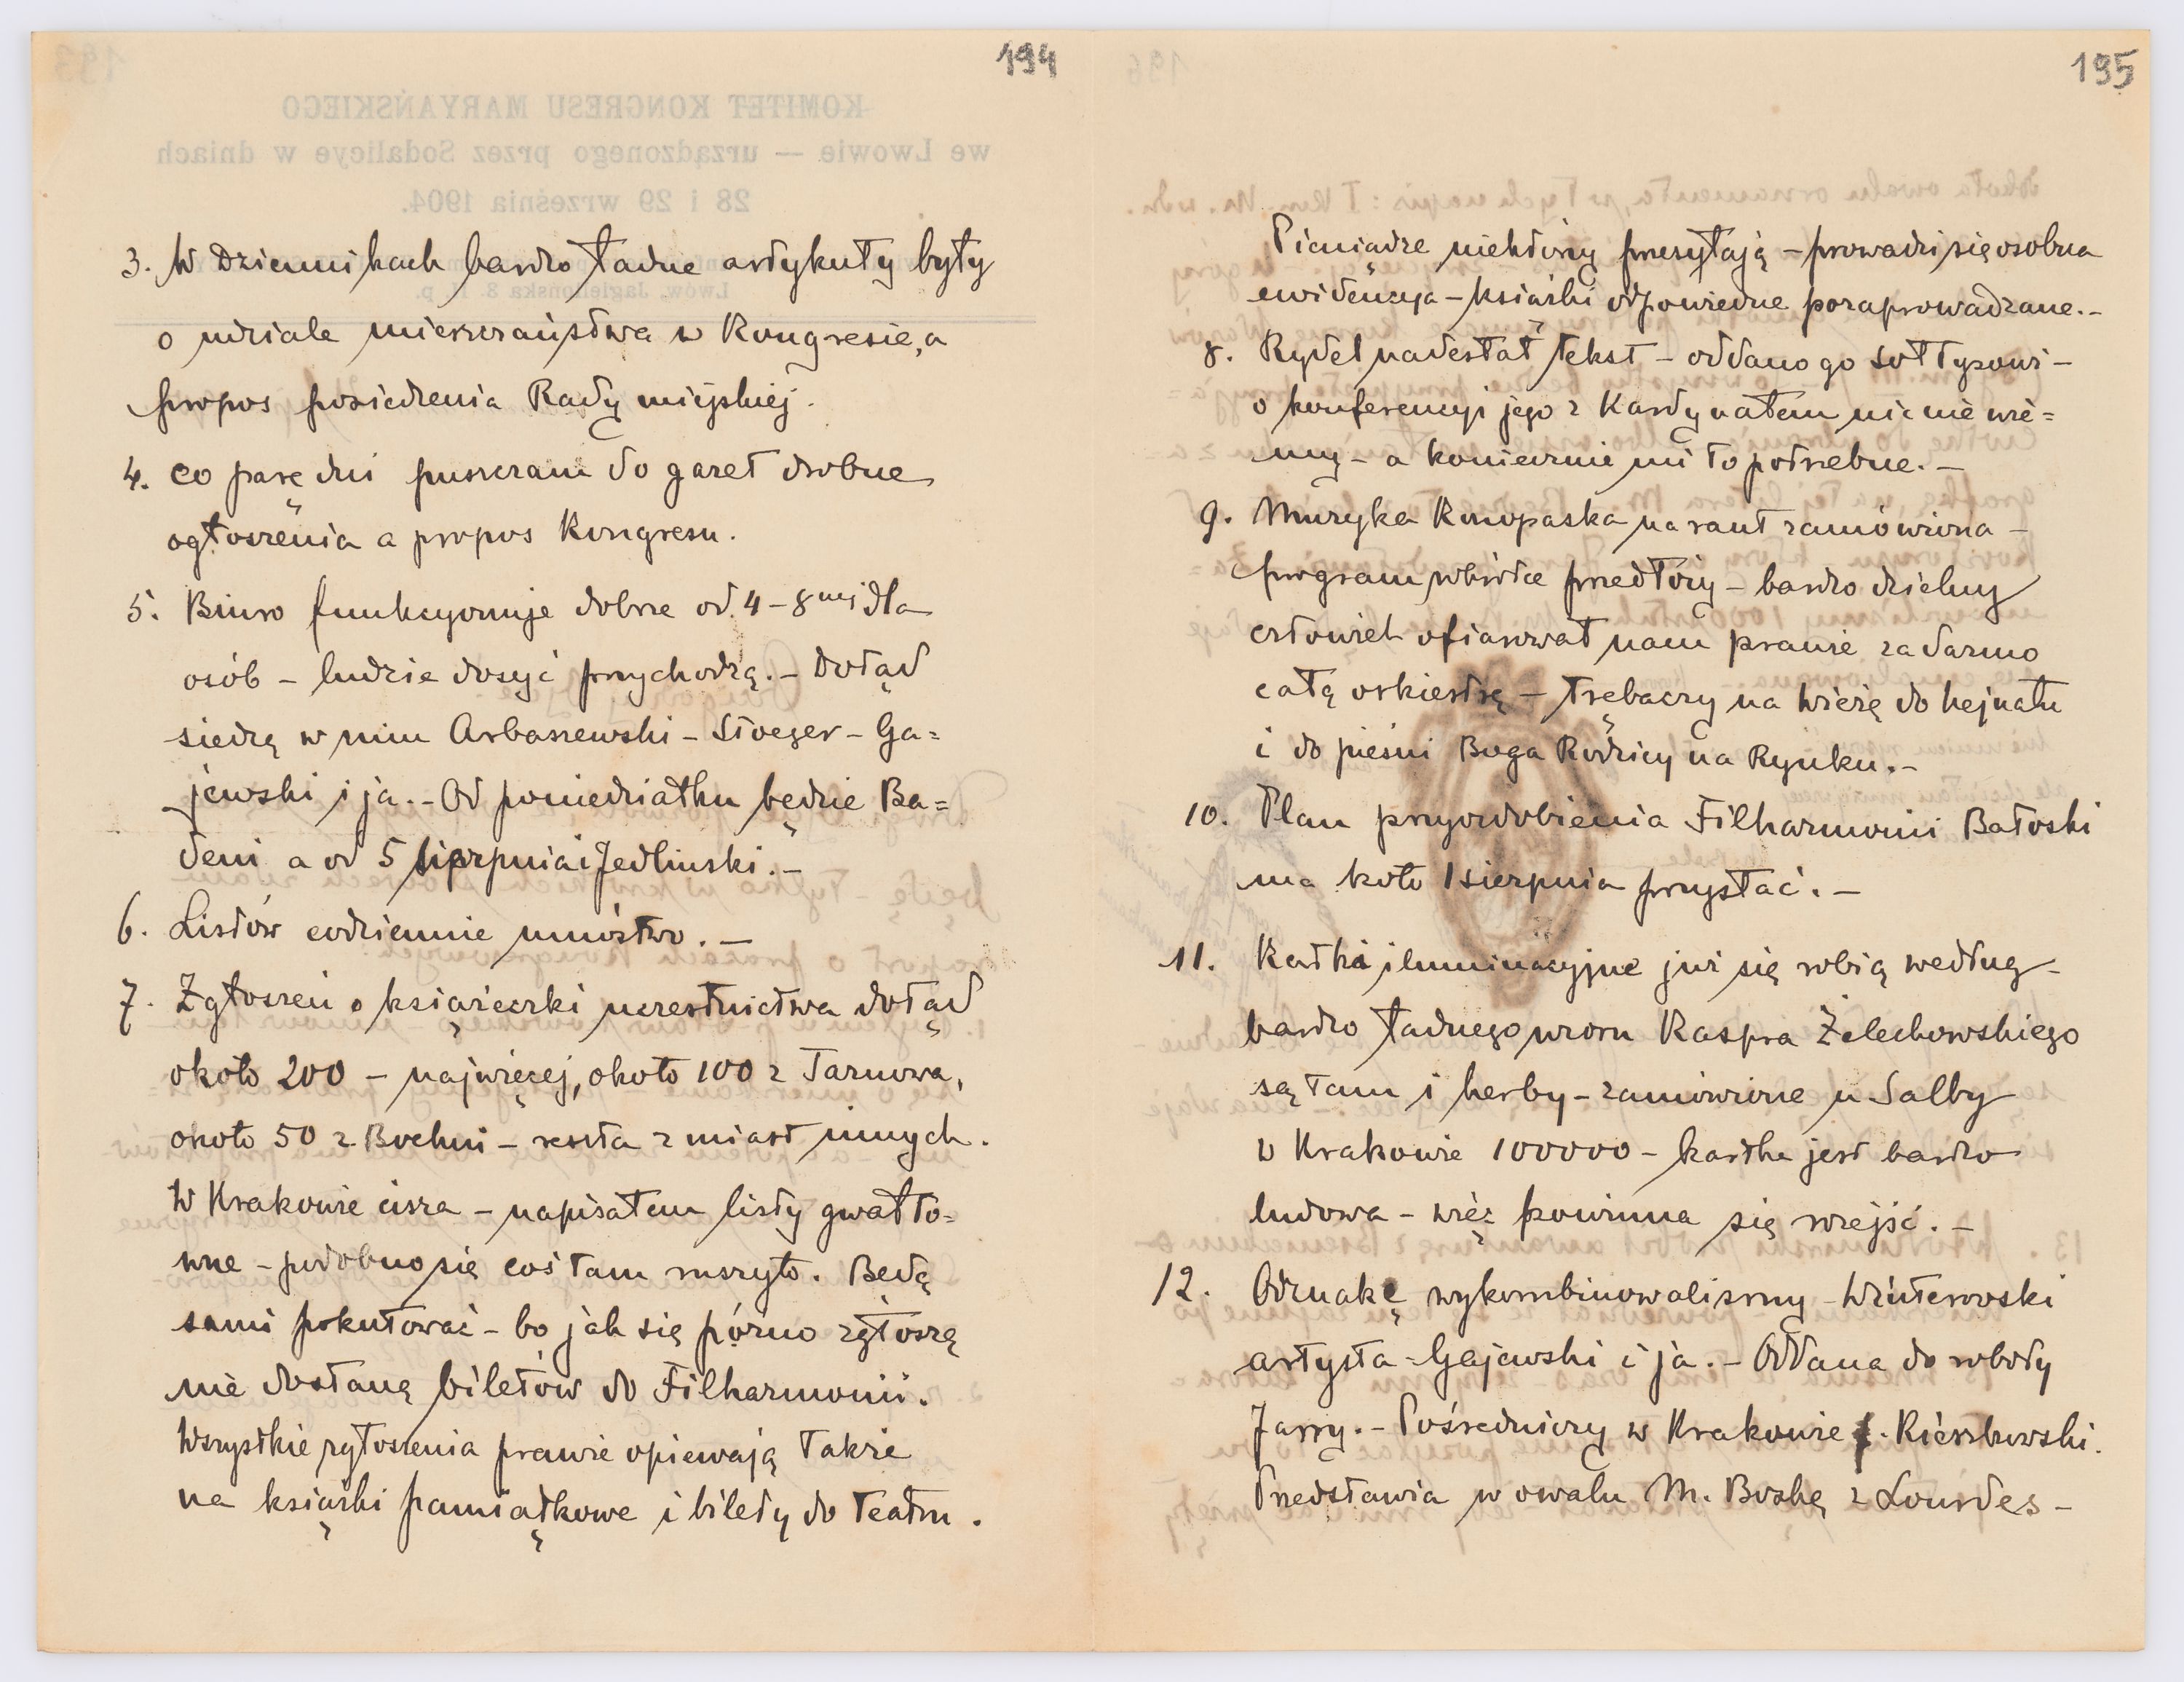 194
3. W Dziennikach bardzo ładne artykuły były
o udziale mieszczaństwa w Kongresie, a
propos posiedzenia Rady miejskiej.
4. Co parę dni puszczam do gazet drobne
ogłoszenia a propos Kongresu.
5. Biuro funkcyonuje dobrze od 4–8mej dla
osób – ludzie dosyć przychodzą. – Dotąd
siedzą w nim Arbaszewski – Stoeger – Ga=
jewski i ja. – Od poniedziałku będzie Ba=
deni a od 5 sierpnia i Jedliński. –
6. Listów codziennie mnóstwo. –
7. Zgłoszeń o książeczki uczestnictwa dotąd
około 200 – najwięcej, około 100 z Tarnowa,
około 50 z Bochni – reszta z miast innych.
W Krakowie cisza – napisałem listy gwałto=
wne – podobno się coś tam ruszyło. Będą
sami pokutować – bo jak się późno zgłoszą
nie dostaną biletów do Filharmonii.
Wszystkie zgłoszenia prawie opiewają także
na książki pamiątkowe i bilety do teatru.
195
Pieniądze niektórzy przesyłają – prowadzi się osobna
ewidencya – książki odpowiednie pozaprowadzane. –
8. Rydel nadesłał tekst – oddano go Sołtysowi –
o konferencyi jego z Kardynałem nic nie wie=
my – a koniecznie mi to potrzebne. –
9. Muzyka Konopaska na raut zamówiona –
program wkrótce przedłoży – bardzo dzielny
człowiek ofiarował nam prawie za darmo
całą orkiestrę – trębaczy na wieżę do hejnału
i do pieśni Boga Rodzicy na Rynku. –
10. Plan przyozdobienia Filharmonii Bałoski
ma koło 1 sierpnia przysłać. –
11. Kartki iluminacyjne już się robią według
bardzo ładnego wzoru Kaspra Żelechowskiego
są tam i herby – zamówione u Salby
w Krakowie 100000 – kartka jest bardzo
ludowa – więc powinna się rozejść. –
12. Odznakę wykombinowaliśmy – Wintorowski
artysta – Gajewski i ja. – Oddana do roboty
Jarry. – Pośredniczy w Krakowie Kierzkowski.
Przedstawia w owalu M. Boską z Lourdes –